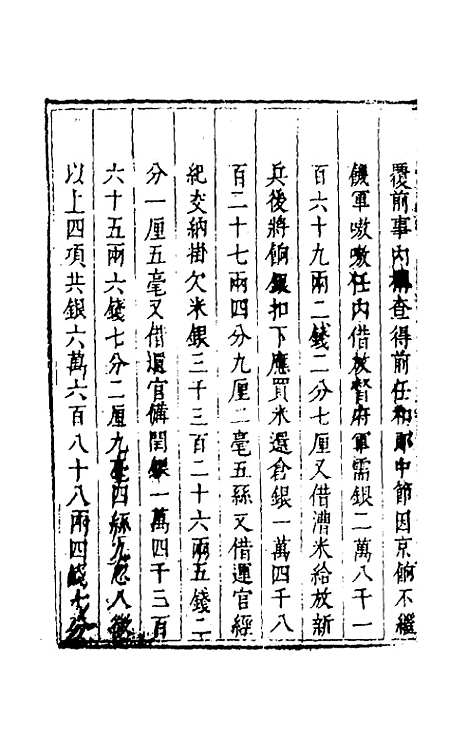 覆前事內稱查得前任和郎中節因京餉不繼
饑軍嗷嗷任內借放督府軍需銀二萬八千一
百六十九兩二錢二分七厘又借漕米給放新
兵後將餉銀扣下應買米還倉銀一萬四千八
百二十七兩四分九厘二毫五絲又借運官經
紀交納掛欠米銀三千三百二十六兩五錢二
分一厘五毫又借還官備閏銀一萬四千三百
六十五兩六錢七分二厘九毫四絲九忽八微
以上四項共銀六萬六百八十八兩四錢七分